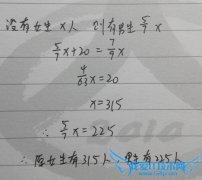 设有女生x人 则有男生5/7x
5/7x+20=7/9x
4/63x=20
x=315
∴ 5/7x=225
∴原女生有315人，男生有225人